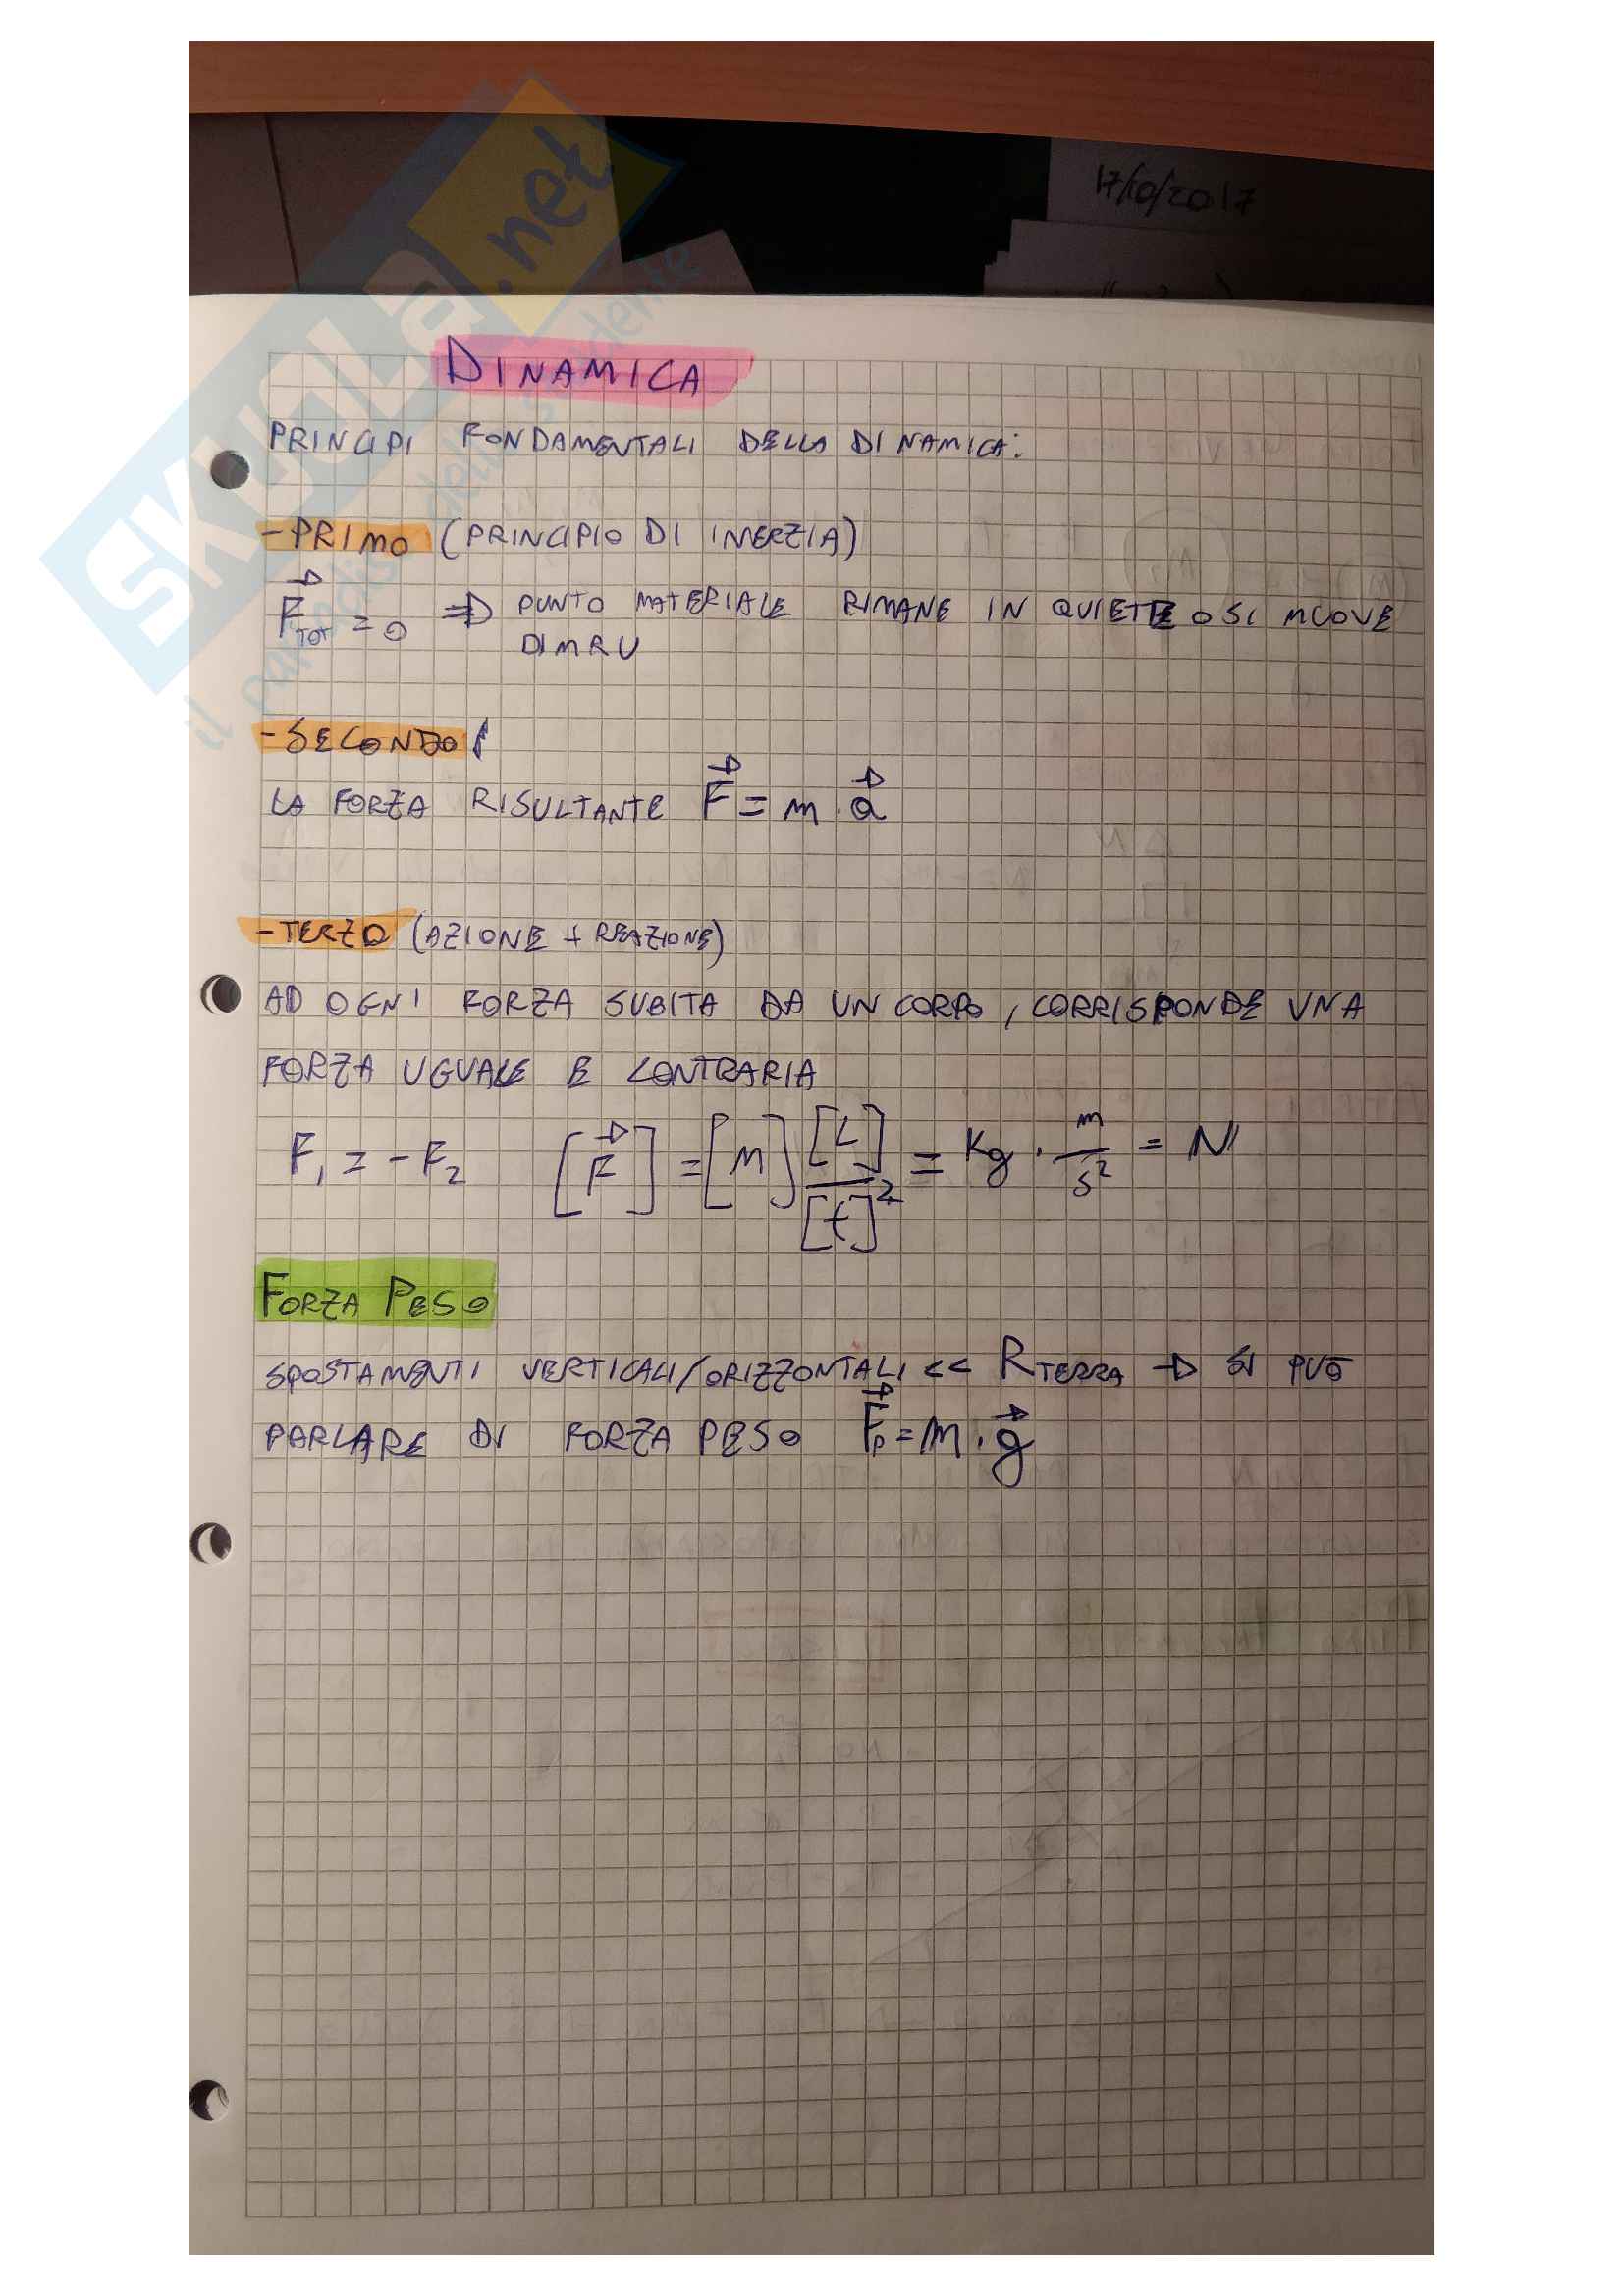 17/10/2017
SKUOLA.net
il paradiso dello studente
DINAMICA
PRINCIPI FONDAMENTALI DELLA DINAMICA:
- PRIMO (PRINCIPIO DI INERZIA)
F⃗TOT = 0 ⇒ PUNTO MATERIALE RIMANE IN QUIETE O SI MUOVE
DI MRU
- SECONDO
LA FORZA RISULTANTE F⃗ = m · a⃗
- TERZO (AZIONE + REAZIONE)
AD OGNI FORZA SUBITA DA UN CORPO, CORRISPONDE UNA
FORZA UGUALE E CONTRARIA
F₁ = - F₂ [F⃗] = [M] [L]/[t]² = Kg · m/s² = N
FORZA PESO
SPOSTAMENTI VERTICALI/ORIZZONTALI << RTERRA → SI PUÒ
PARLARE DI FORZA PESO F⃗p = m · g⃗